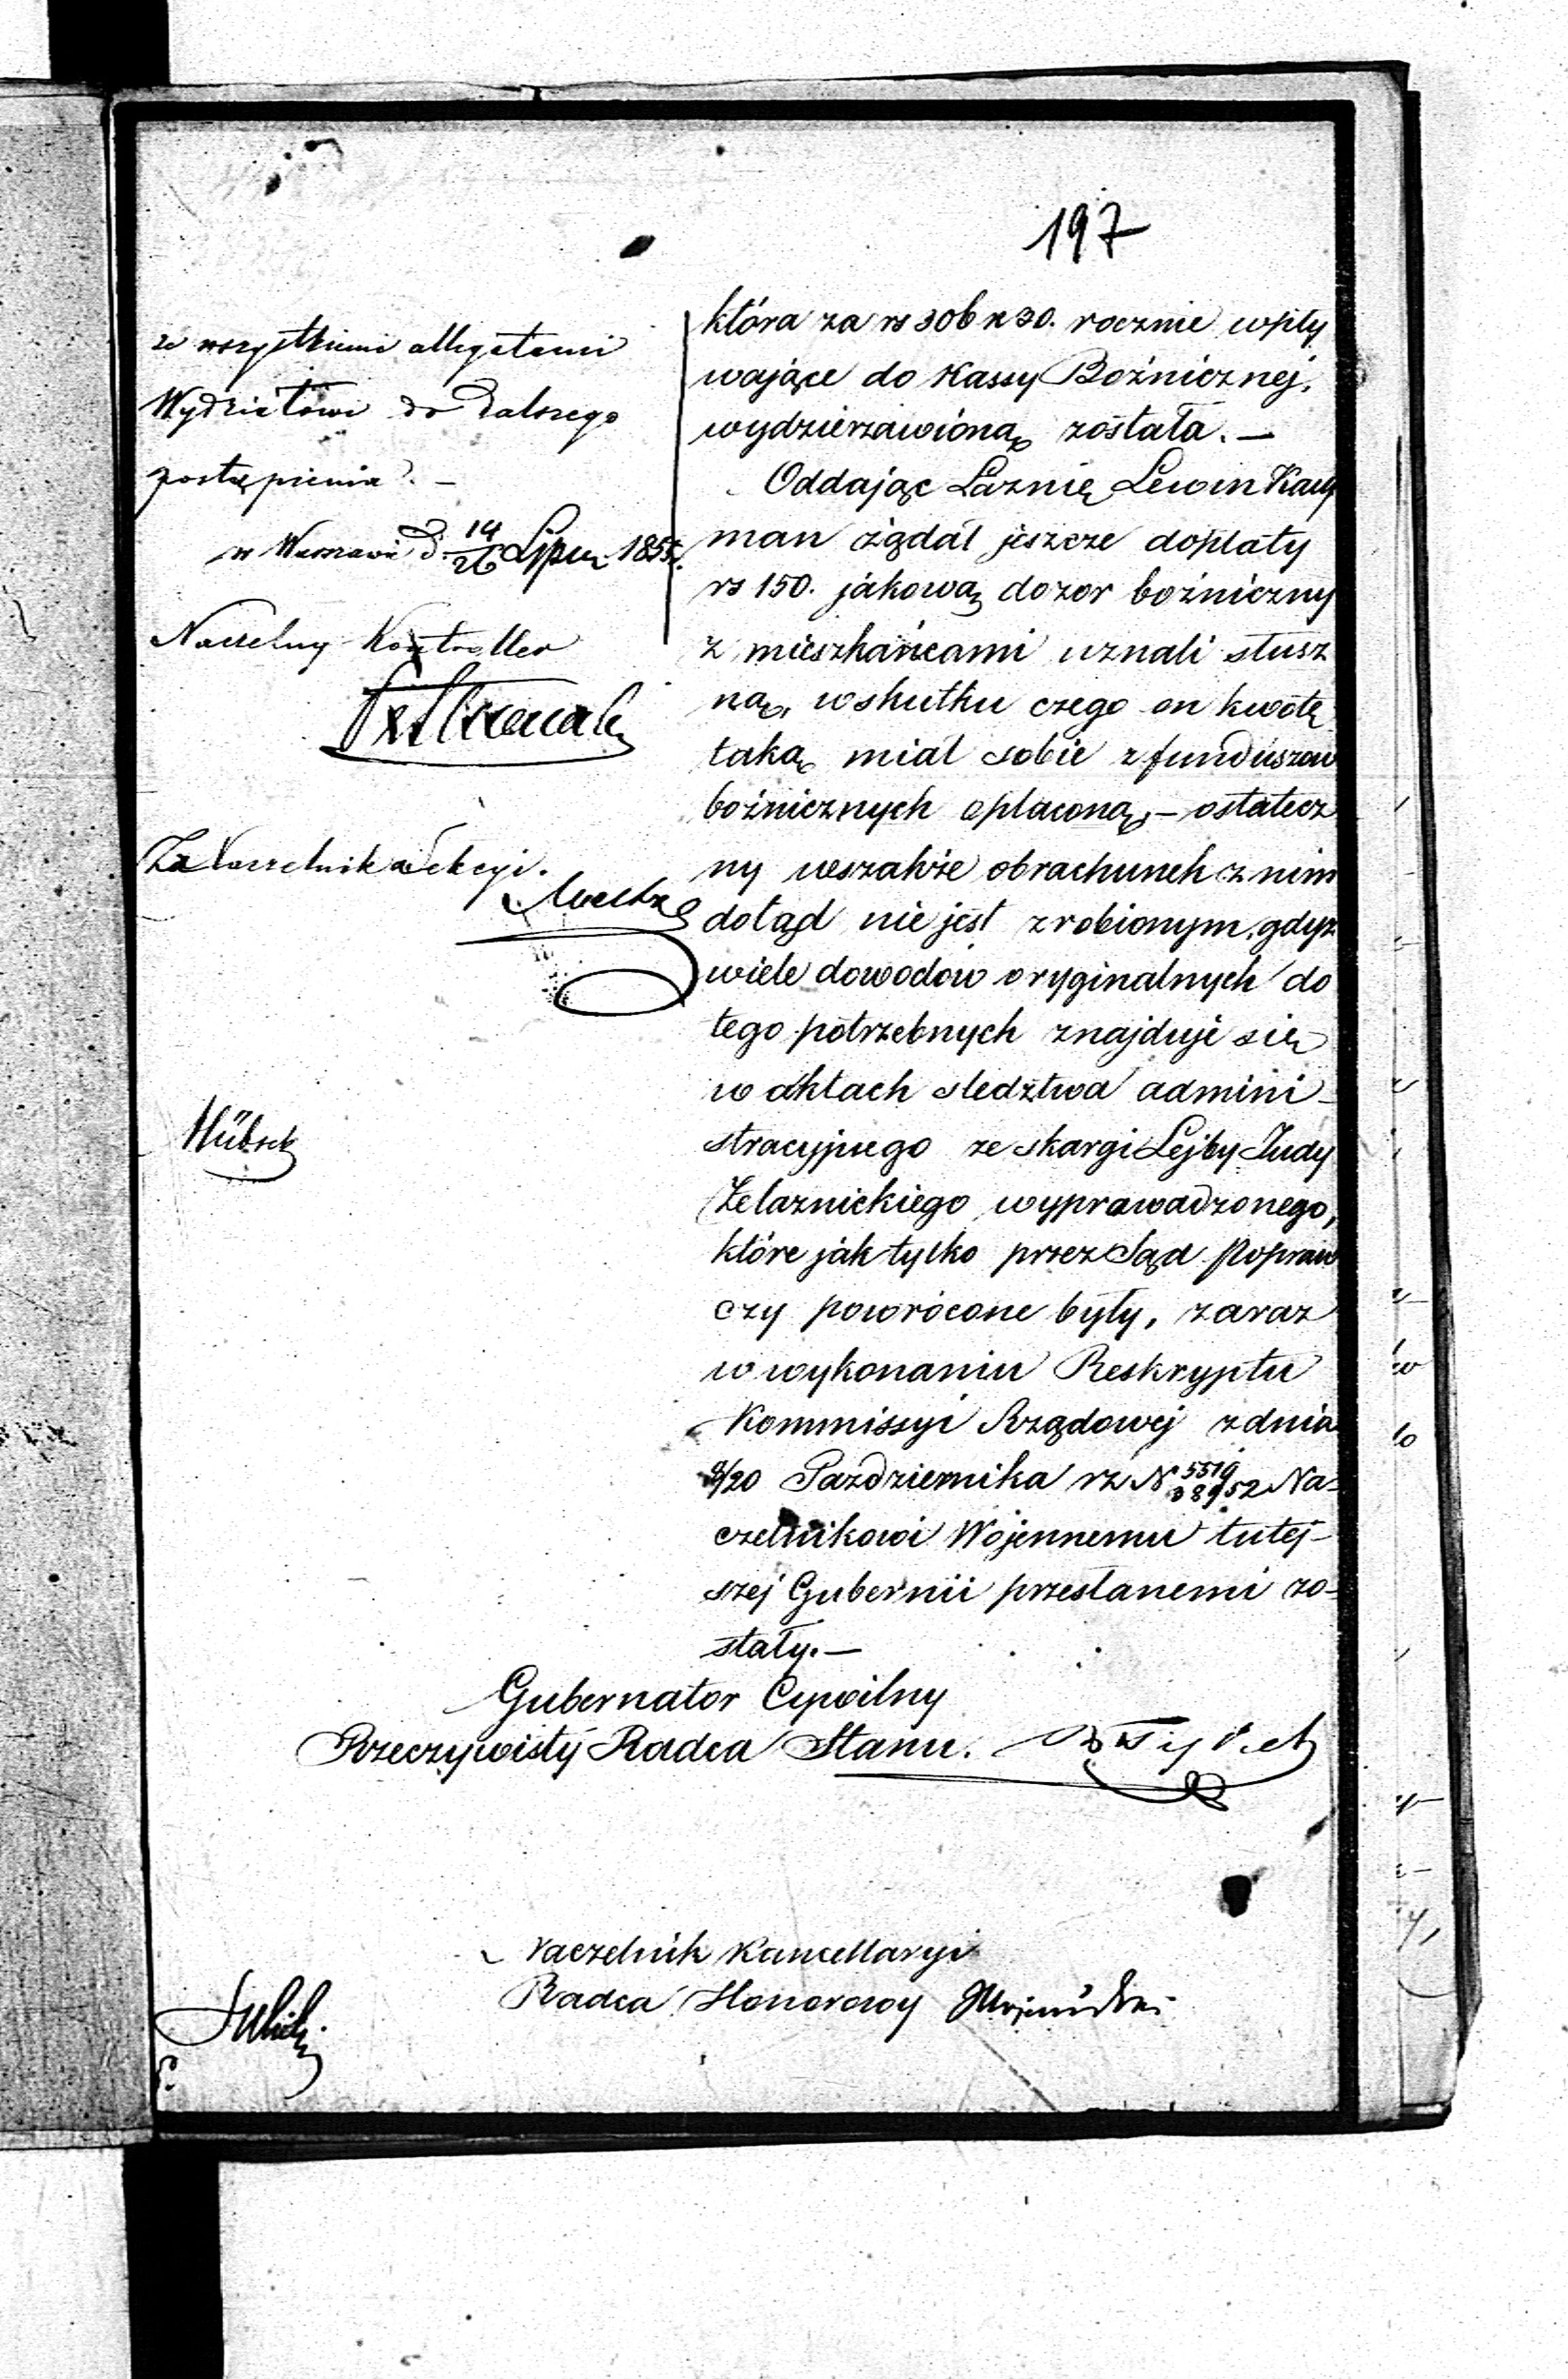 197
ze wszystkiemi allegatami
Wydziałowi do dalszego
postąpienia. –
w Warszawie d. 14/26 Lipca 1855.
Naczelny Kontroller
Za Naczelnika Sekcyi.
Hübsch
która za rs 306 k 30. rocznie wpły
wające do Kassy Bożnicznej,
wydzierzawioną została. —
Oddając Łaznię Lewin Kauf
man żądał jeszcze dopłaty
rs 150. jakową dozor bożniczny
z mieszkańcami uznali słusz
ną, wskutku czego on kwotę
taką miał sobie z funduszow
bożnicznych opłaconą, – ostatecz
ny wszakże obrachunek z nim
dotąd nie jest zrobionym, gdyz
wiele dowodow oryginalnych do
tego potrzebnych znajduje się
w aktach sledztwa admini-
stracyjnego ze skargi Lejby Judy
Zelaznickiego wyprowadzonego,
które jak tylko przez Sąd Popraw
czy powrócone były, zaraz
w wykonaniu Reskryptu
Kommissyi Rządowej z dnia
8/20 Pazdziernika rz N 5519/38952 Na-
czelnikowi Wojennemu tutej-
szej Gubernii przesłanemi zo-
stały. —
Gubernator Cywilny
Rzeczywisty Radca Stanu.
Naczelnik Kancellaryi
Radca Honorowy